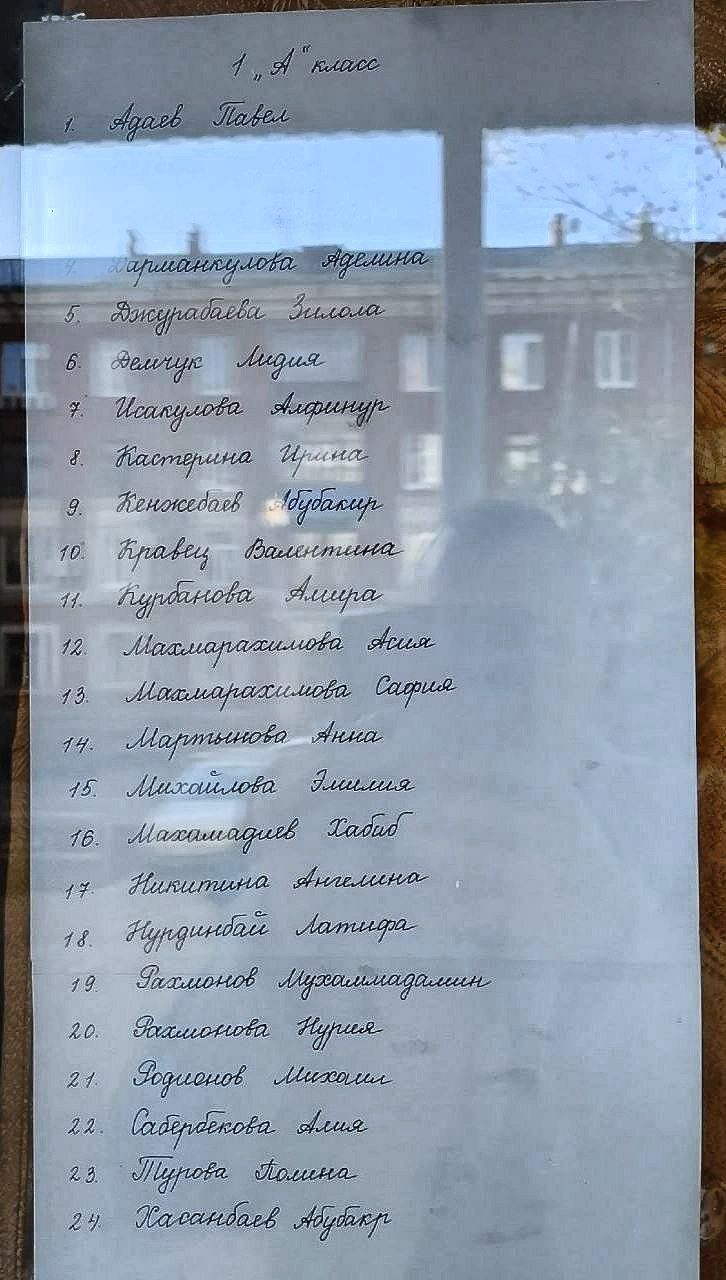 1 „А“ класс
1. Адаев Павел
4. Дарманкулова Аделина
5. Джурабаева Зилола
6. Демчук Лидия
7. Исакулова Алфинур
8. Кастерина Ирина
9. Кенжебаев Абубакир
10. Кравец Валентина
11. Курбанова Амира
12. Махмарахимова Асия
13. Махмарахимова Сафия
14. Мартынова Анна
15. Михайлова Эмилия
16. Махамадиев Хабиб
17. Никитина Ангелина
18. Нурдинбай Латифа
19. Рахмонов Мухаммадамин
20. Рахмонова Нурия
21. Родионов Михаил
22. Сабербекова Алия
23. Турова Полина
24. Хасанбаев Абубакр